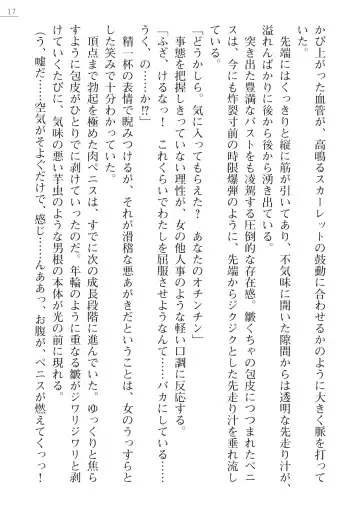 17
かび上がった血管が、高鳴るスカーレットの鼓動に合わせるかのように大きく脈を打って
いた。
先端にはくっきりと縦に筋が引いてあり、不気味に開いた隙間からは透明な先走り汁が、
溢れんばかりに後から後から湧き出ている。
突き出た豊満なバストをも凌駕する圧倒的な存在感。皺くちゃの包皮につつまれたペニ
スは、今にも炸裂寸前の時限爆弾のように、先端からジクジクとした先走り汁を垂れ流し
ている。
「どうかしら。気に入ってもらえた？　あなたのオチンチン」
事態を把握しきっていない理性が、女の他人事のような軽い口調に反応する。
「ふざ、けるなっ！　これくらいでわたしを屈服させようなんて……バカにしている……
うく、の……か!?」
精一杯の表情で睨みつけるが、それが滑稽な悪あがきだということは、女のうっすらと
した笑みで十分わかっていた。
頂点まで勃起を極めた肉ペニスは、すでに次の成長段階に進んでいた。ゆっくりと焦ら
すように包皮がひとりでに剥けていったのだ。年輪のように重なる皺がジワリジワリと剥
けていくたびに、気味の悪い芋虫のような男根の本体が光の前に現れる。
（う、嘘だ……空気がそよぐだけで、感じ……んぁああっ、お腹が、ペニスが燃えてくっっ！